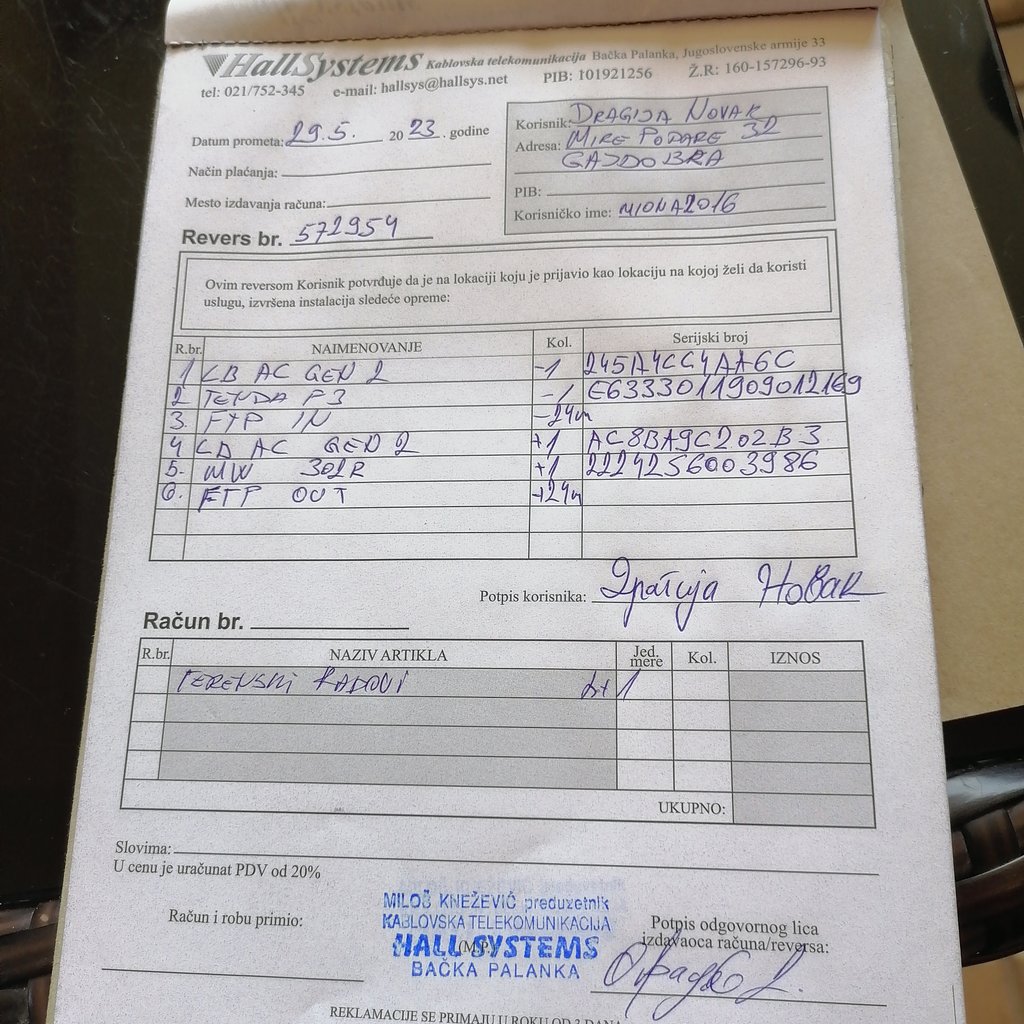 HallSystems Kablovska telekomunikacija Bačka Palanka, Jugoslovenske armije 33
tel: 021/752-345 e-mail: hallsys@hallsys.net PIB: 101921256 Ž.R: 160-157296-93
Datum prometa: 29.5. 2023. godine
Način plaćanja:
Mesto izdavanja računa:
Revers br. 572954
Korisnik: DRAGIJA NOVAK
Adresa: MIRE POPARE 32
GAJDOBRA
PIB:
Korisničko ime: MIONA2016
Ovim reversom Korisnik potvrđuje da je na lokaciji koju je prijavio kao lokaciju na kojoj želi da koristi
uslugu, izvršena instalacija sledeće opreme:
R.br. NAIMENOVANJE Kol. Serijski broj
1 LB AC GEN 2 -1 245A4CC4AA6C
2 TENDA P3 -1 E6333011909012169
3. FTP IN -24m
4 LB AC GEN 2 +1 AC8BA9C202B3
5. MW 302R +1 2224256003986
6. FTP OUT +24m
Potpis korisnika: Драгија Новак
Račun br.
R.br. NAZIV ARTIKLA Jed. mere Kol. IZNOS
TERENSKI RADOVI 1
UKUPNO:
Slovima:
U cenu je uračunat PDV od 20%
Račun i robu primio:
MILOŠ KNEŽEVIĆ preduzetnik
KABLOVSKA TELEKOMUNIKACIJA
(M.P.)
HALL SYSTEMS
BAČKA PALANKA
Potpis odgovornog lica
izdavaoca računa/reversa:
REKLAMACIJE SE PRIMAJU U ROKU OD 3 DANA